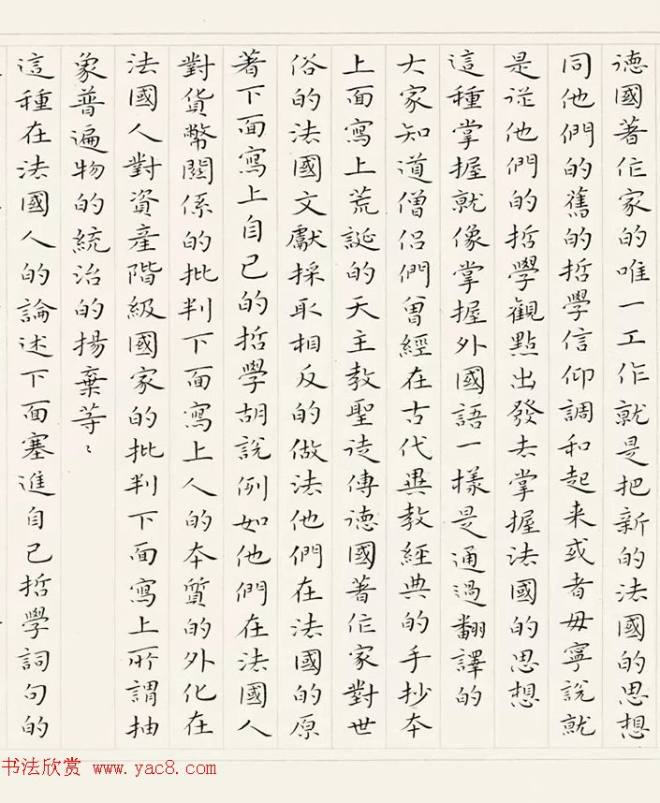 德國著作家的唯一工作就是把新的法國的思想
同他們的舊的哲學信仰調和起来或者毋寧說就
是從他們的哲學觀點出發去掌握法國的思想
這種掌握就像掌握外國語一樣是通過翻譯的
大家知道僧侣們曾經在古代異教經典的手抄本
上面寫上荒誕的天主教聖徒傳德國著作家對世
俗的法國文獻採取相反的做法他們在法國的原
著下面寫上自己的哲學胡說例如他們在法國人
對貨幣關係的批判下面寫上人的本質的外化在
法國人對資産階級國家的批判下面寫上所謂抽
象普遍物的統治的揚棄等〻
這種在法國人的論述下面塞進自己哲學詞句的
书法欣赏 www.yac8.com